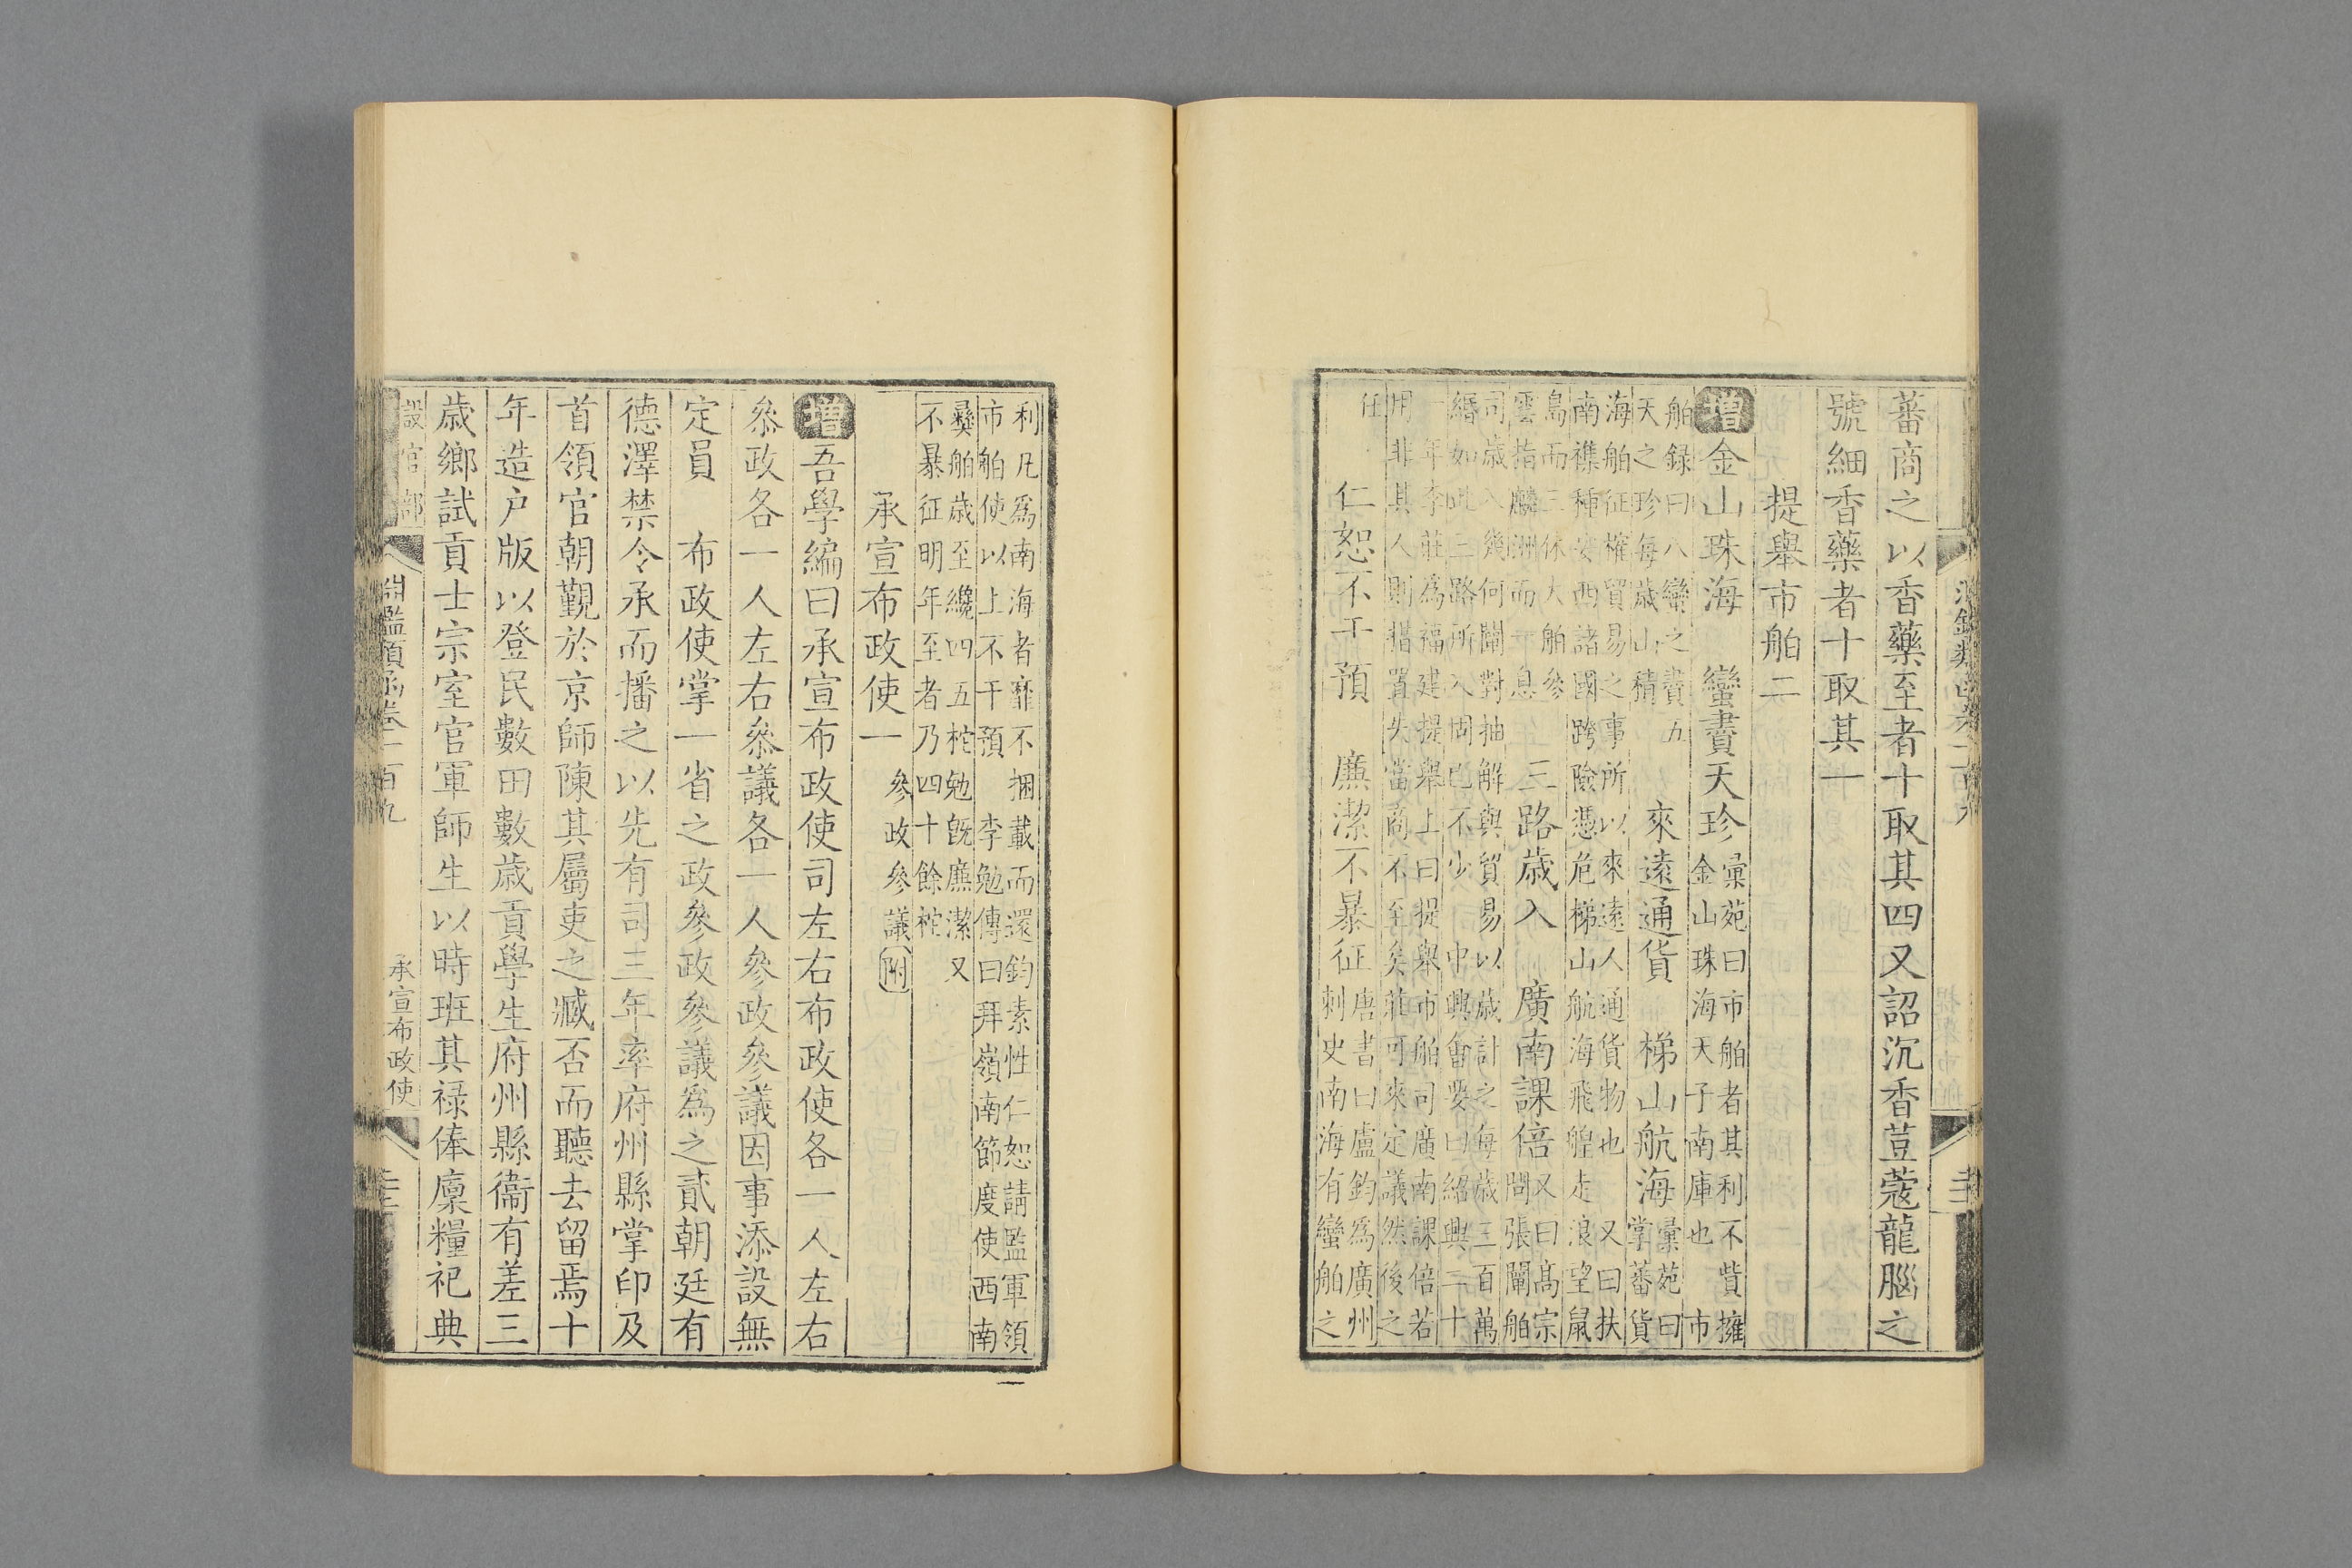 淵鑑類函卷二百九
提舉市舶
蕃商之以香藥至者十取其四又詔沉香荳蔻龍腦之
號細香藥者十取其一
提舉市舶二
增金山珠海 蠻賮天珍
彙苑曰市舶者其利不貲擁
金山珠海天子南庫也 市
舶録曰八蠻之賮五
天之珍每歲山積
來遠通貨 梯山航海
彙苑曰
掌蕃貨
海舶征榷貿易之事所以來遠人通貨物也 又曰扶
南襟種安西諸國跨險憑危梯山航海飛艎走浪望鼠
島而三休大舶參
雲指麟洲而一息
三路歲入 廣南課倍
又曰高宗
問張闡舶
司歲入幾何闡對抽解與貿易以歲計之每歲三百萬
緡如此三路所入固已不少 中興會要曰紹興二十
一年李莊爲福建提舉上曰提舉市舶司廣南課倍若
用非其人則措置失當商不至矣莊可來定議然後之
任
仁恕不干預 廉潔不暴征
唐書曰盧鈞爲廣州
刺史南海有蠻舶之
利凡爲南海者靡不捆載而還鈞素性仁恕請監軍領
市舶使以上不干預 李勉傳曰拜嶺南節度使西南
彝舶歲至纔四五柁勉旣廉潔又
不暴征明年至者乃四十餘柁
承宣布政使一 參政參議附
增吾學編曰承宣布政使司左右布政使各一人左右
叅政各一人左右叅議各一人參政參議因事添設無
定員 布政使掌一省之政參政參議爲之貳朝廷有
德澤禁令承而播之以先有司三年率府州縣掌印及
首領官朝覲於京師陳其屬吏之臧否而聽去留焉十
年造户版以登民數田數歲貢學生府州縣衞有差三
歲鄉試貢士宗室官軍師生以時班其禄俸廩糧祀典
設官部
淵鑑類函卷一百九
承宣布政使